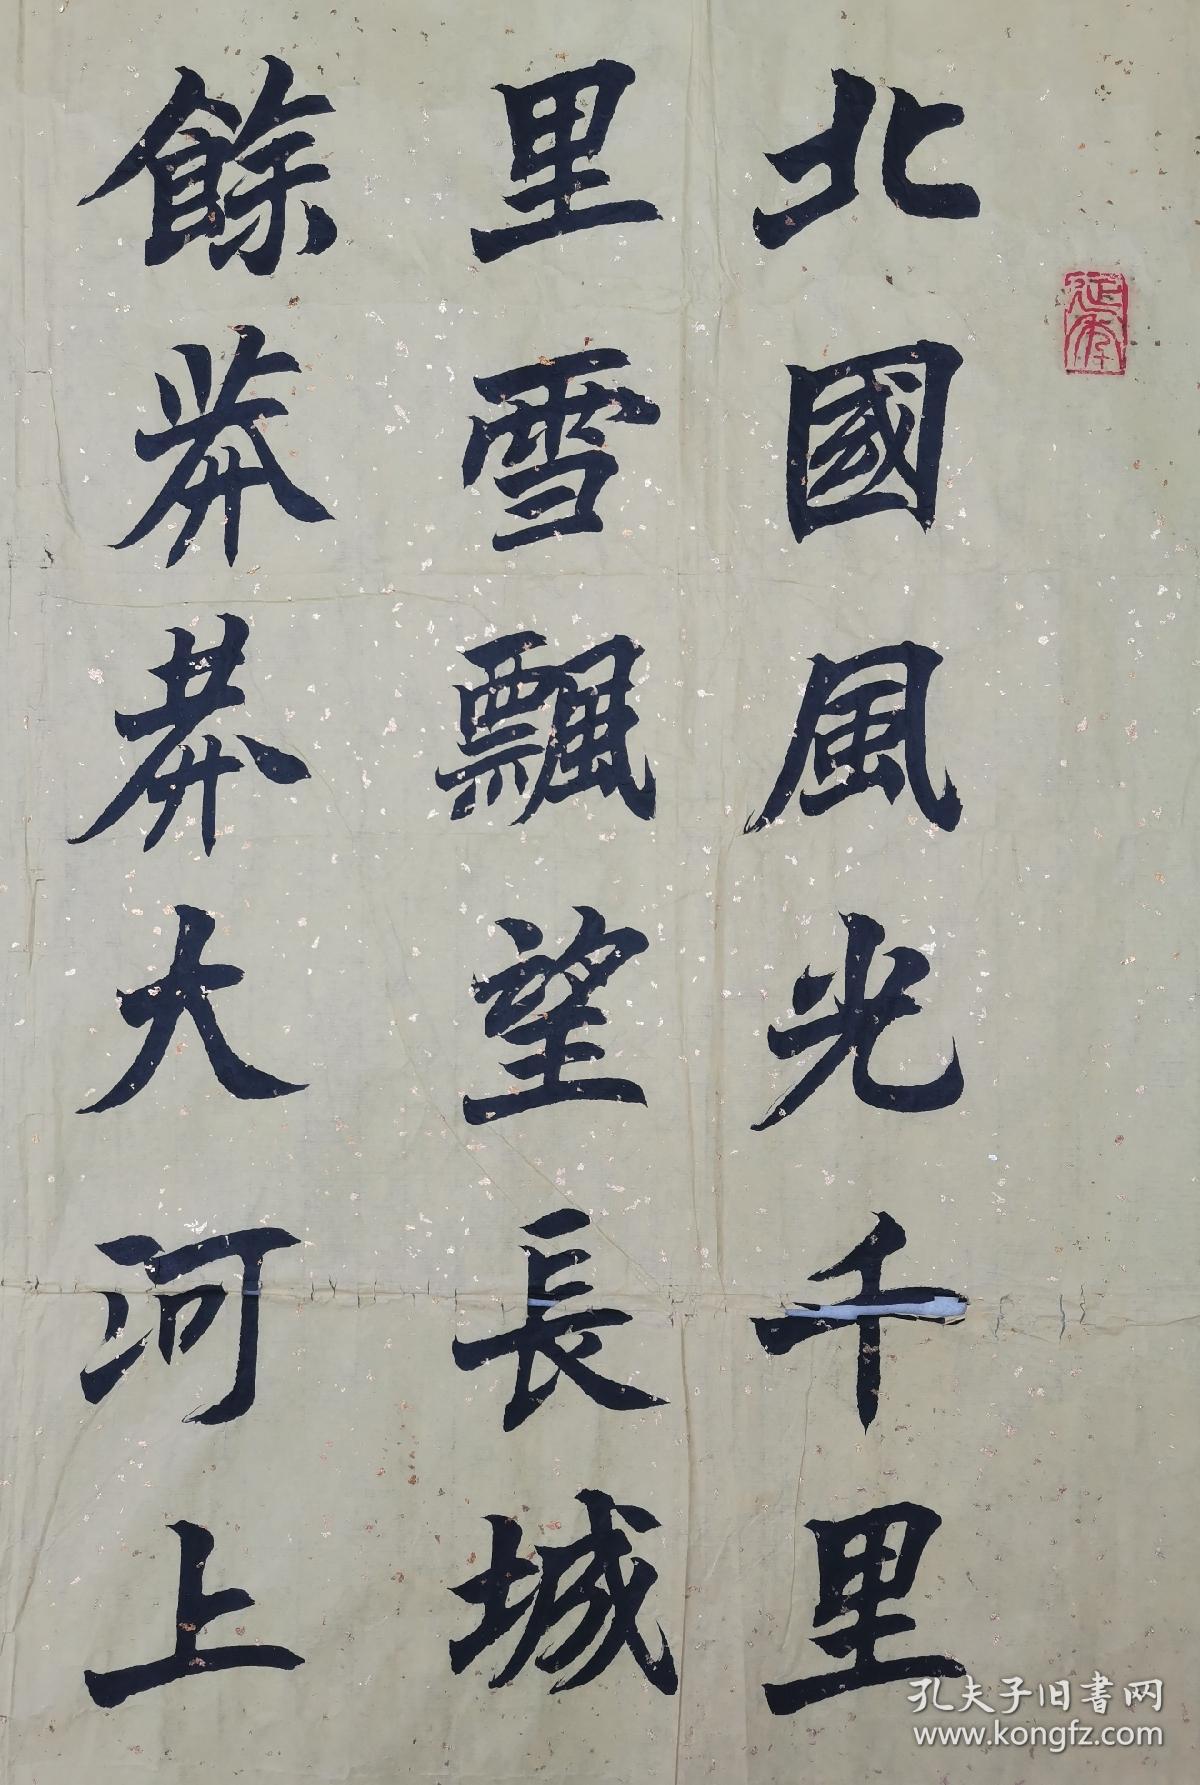 延年
北國風光千里
里雪飄望長城
餘莽莽大河上
孔夫子旧書网
www.kongfz.com